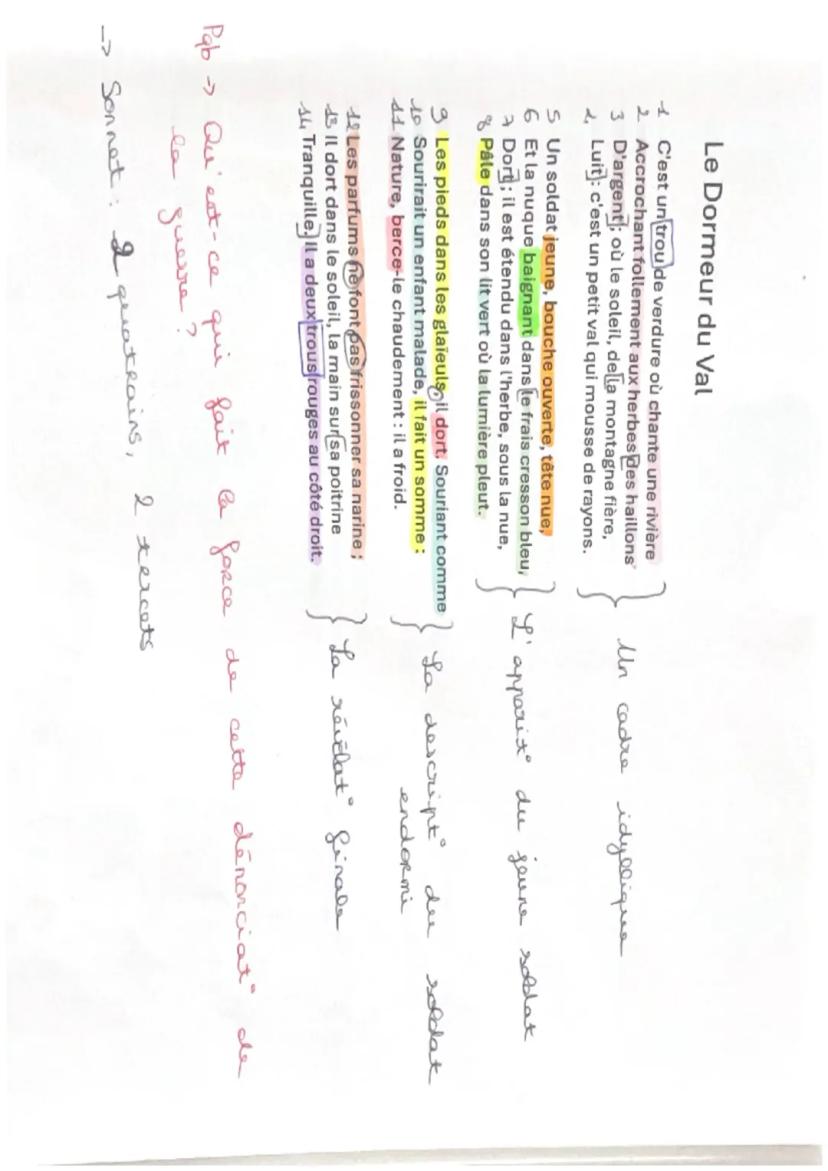 Le Dormeur du Val
1 C'est un trou de verdure où chante une rivière
2 Accrochant follement aux herbes des haillons
3 D'argent ; où le soleil, de la montagne fière,
4 Luit : c'est un petit val qui mousse de rayons.
Un cadre idyllique
5 Un soldat jeune, bouche ouverte, tête nue,
6 Et la nuque baignant dans le frais cresson bleu,
7 Dort ; il est étendu dans l'herbe, sous la nue,
8 Pâle dans son lit vert où la lumière pleut.
L'apparit° du jeune soldat
9 Les pieds dans les glaïeuls, il dort. Souriant comme
10 Sourirait un enfant malade, il fait un somme :
11 Nature, berce-le chaudement : il a froid.
La descript° du soldat
endormi
12 Les parfums ne font pas frissonner sa narine ;
13 Il dort dans le soleil, la main sur sa poitrine
14 Tranquille. Il a deux trous rouges au côté droit.
La révélat° finale
Pqb → Qu'est-ce qui fait la force de cette dénonciat° de
la guerre ?
→ Sonnet : 2 quatrains, 2 tercets